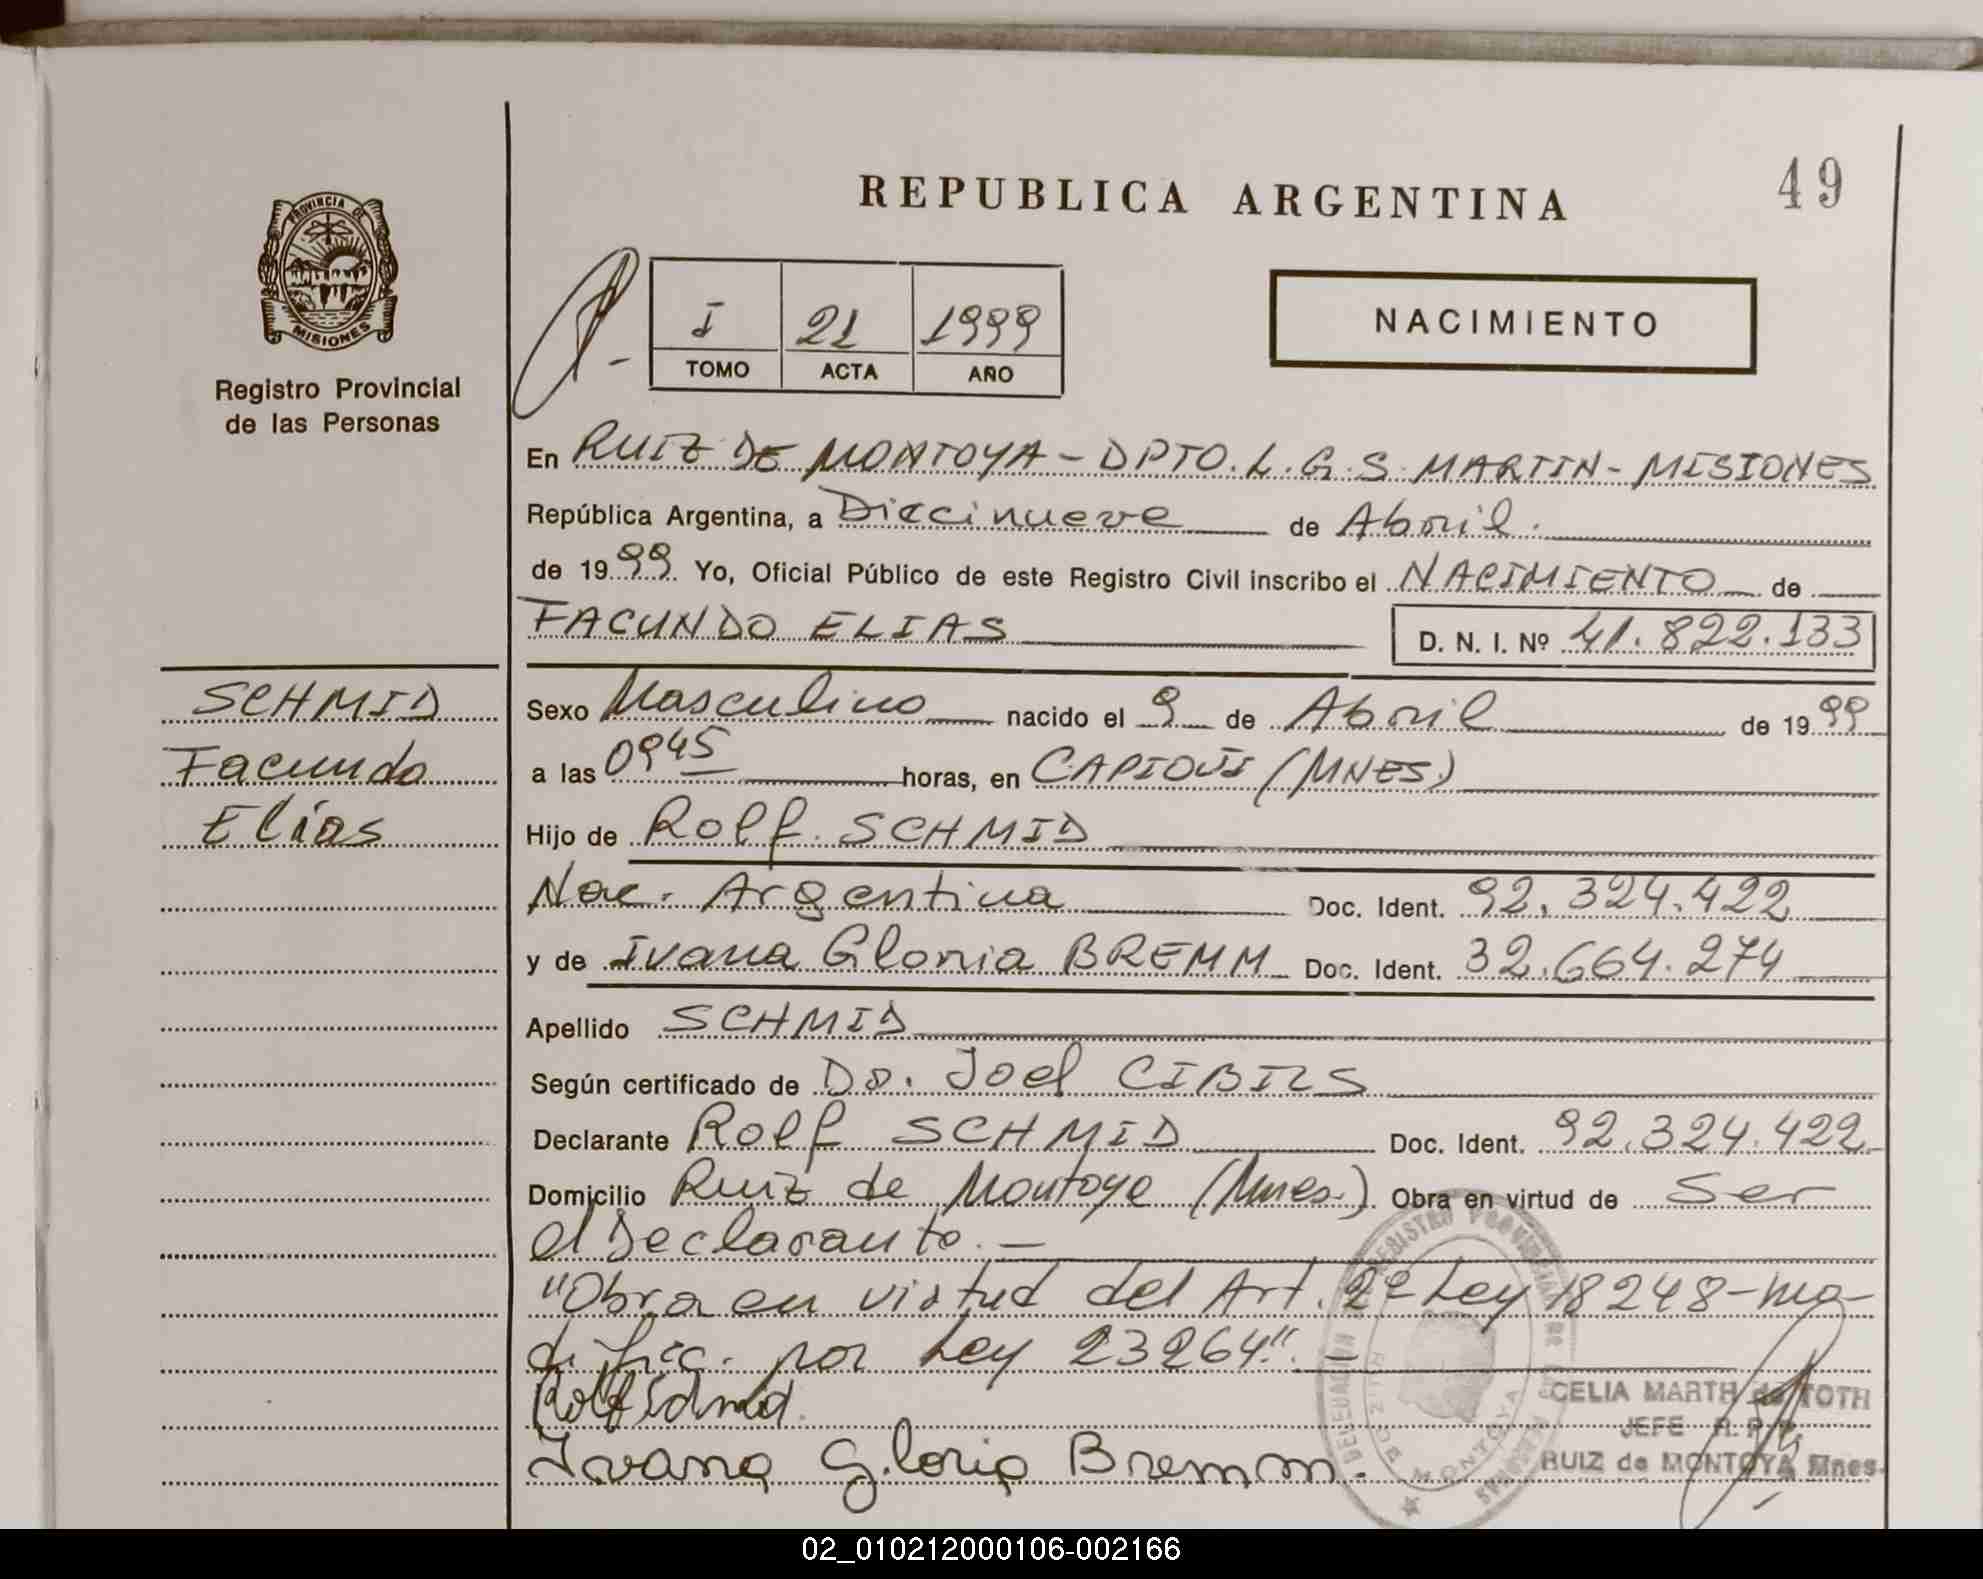 49
REPUBLICA ARGENTINA
PROVINCIA DE
MISIONES
Registro Provincial
de las Personas
I 21 1999
TOMO ACTA AÑO
NACIMIENTO
En RUIZ DE MONTOYA - DPTO. L. G. S. MARTIN - MISIONES
República Argentina, a Diecinueve de Abril.
de 1999. Yo, Oficial Público de este Registro Civil inscribo el NACIMIENTO de
FACUNDO ELIAS D. N. I. Nº 41.822.133
SCHMID
Facundo
Elías
Sexo Masculino nacido el 9 de Abril de 1999
a las 0945 horas, en CAPIOVI (MNES)
Hijo de Rolf SCHMID
Nac. Argentina Doc. Ident. 92.324.422
y de Ivana Gloria BREMM Doc. Ident. 32.664.274
Apellido SCHMID
Según certificado de Dr. Joel CIBILS
Declarante Rolf SCHMID Doc. Ident. 92.324.422
Domicilio Ruiz de Montoya (Mnes.) Obra en virtud de Ser
el Declarante. -
"Obra en virtud del Art. 2º Ley 18248-mo-
dific. por Ley 23264". -
Rolf Schmid.
Ivana Gloria Bremm.
CELIA MARTH de TOTH
JEFE R. P. P.
RUIZ de MONTOYA Mnes.
02_010212000106-002166